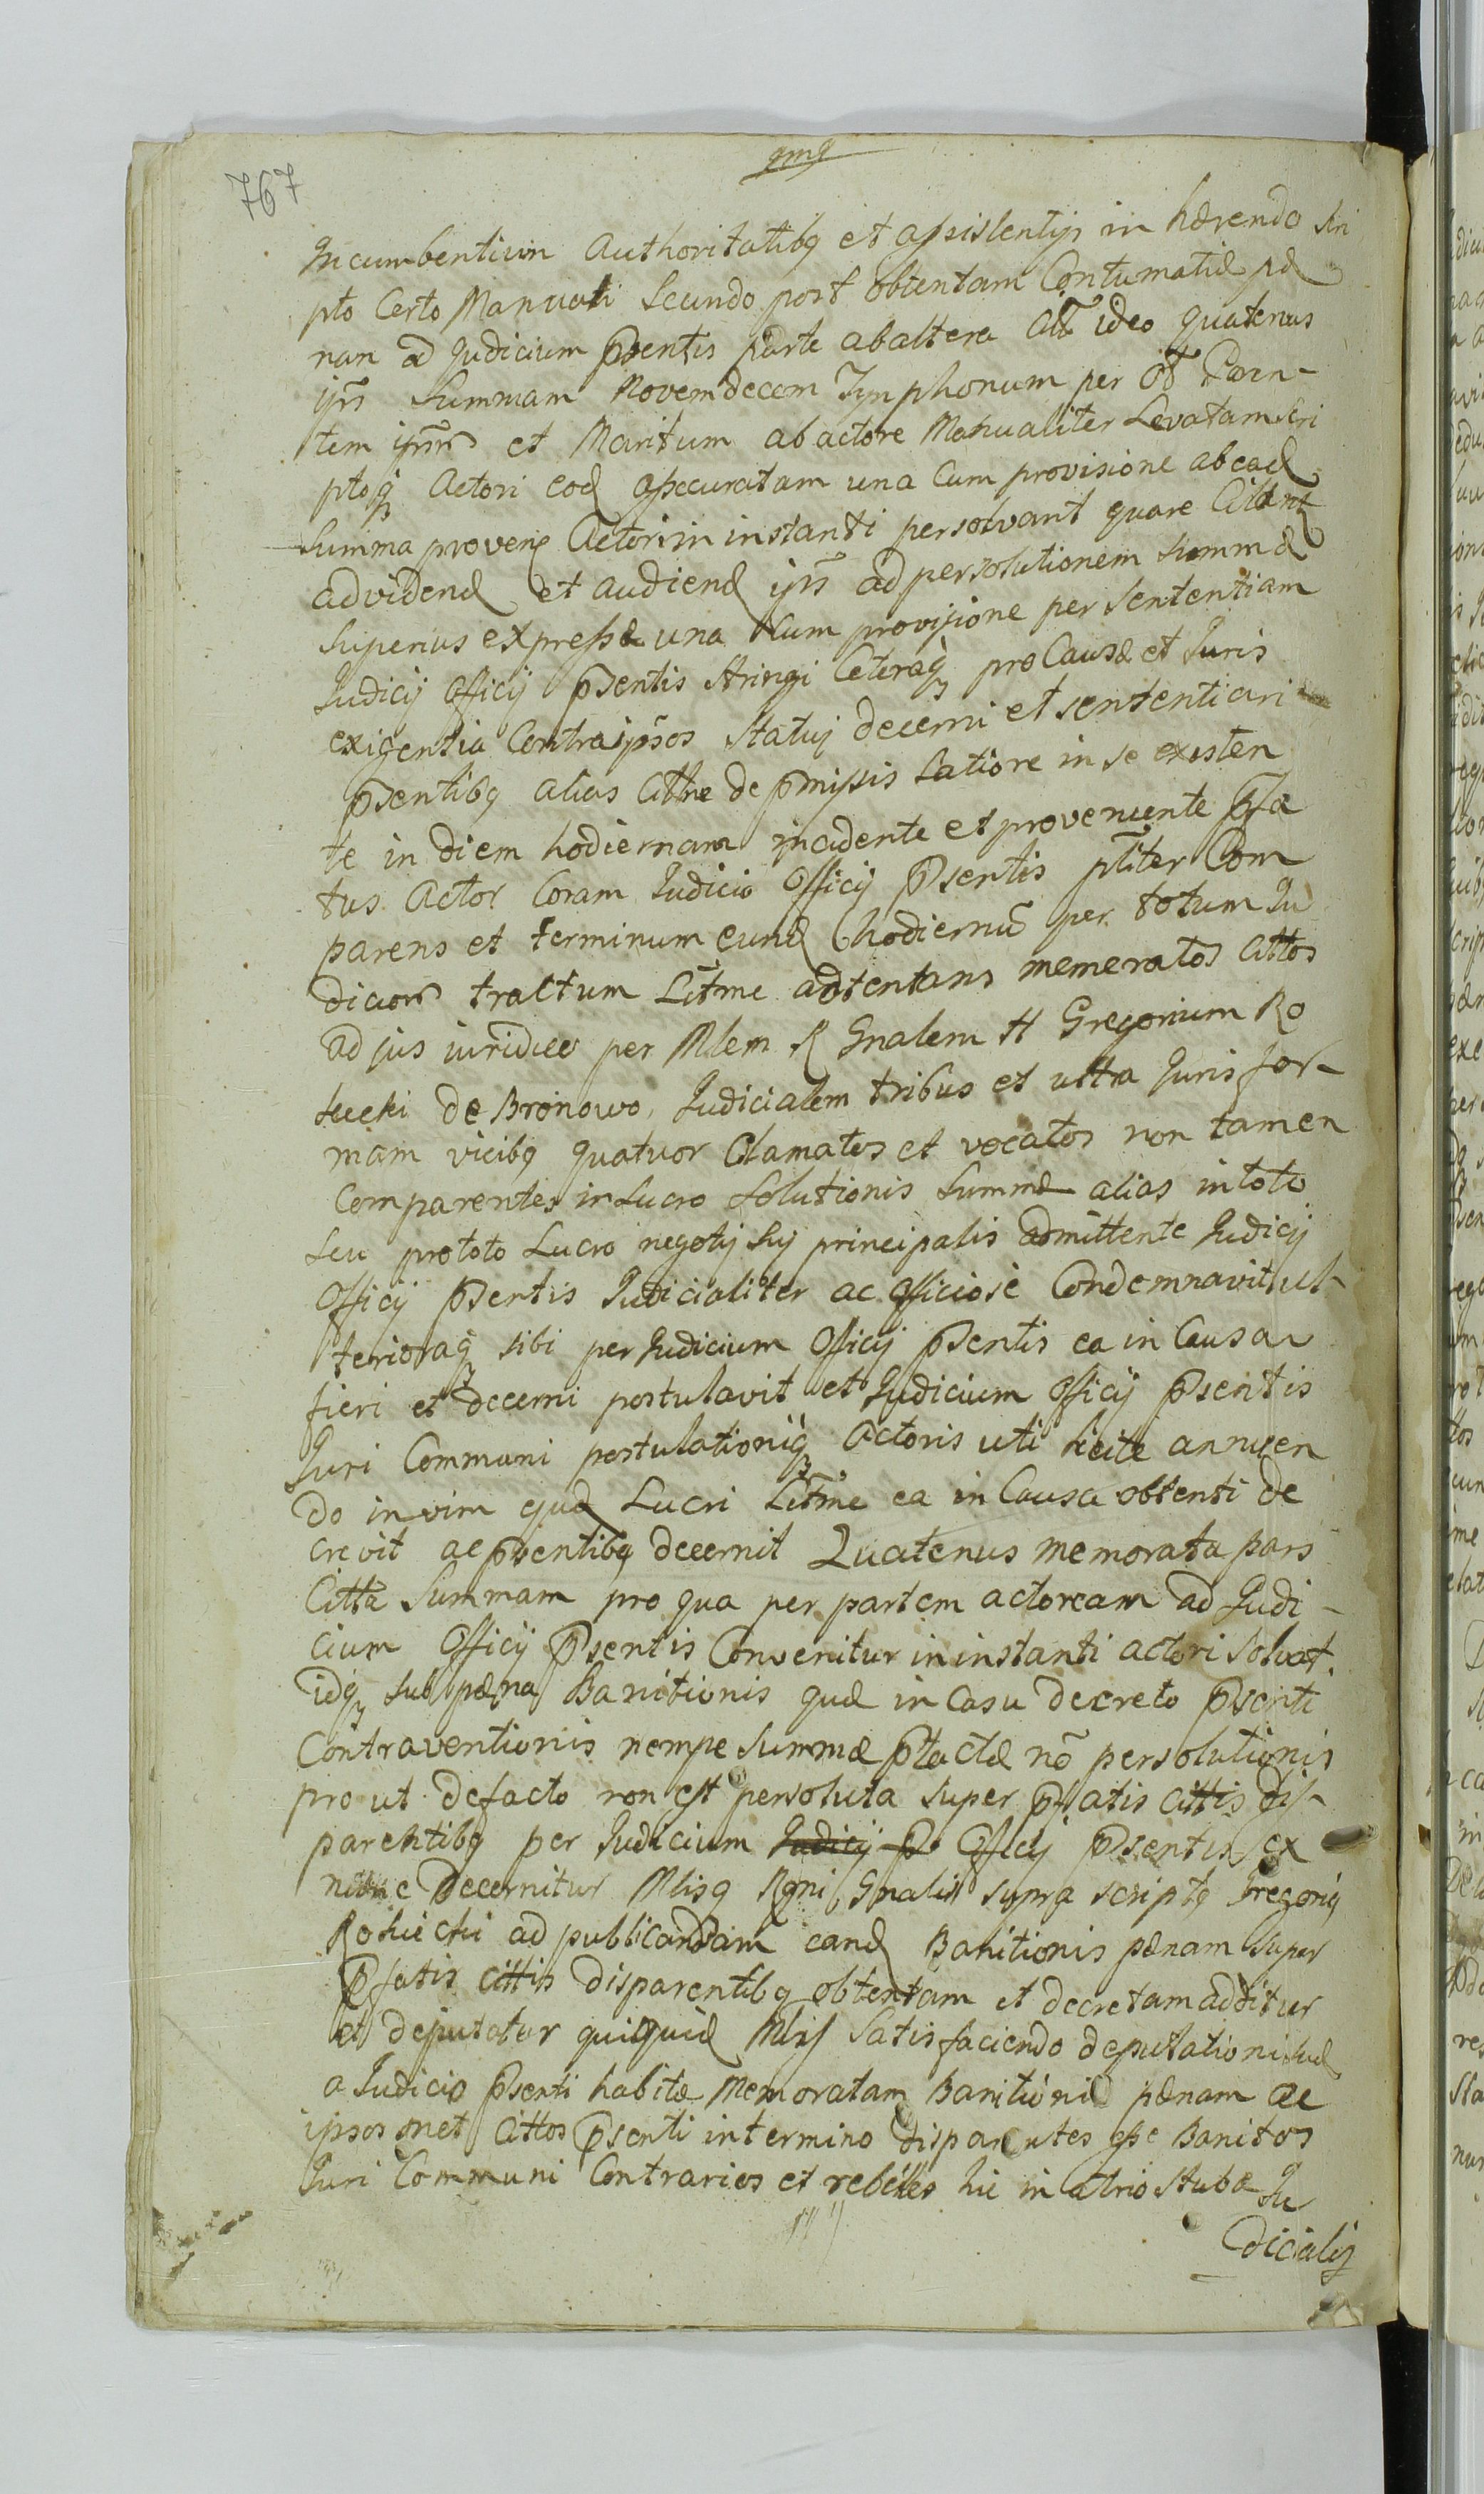 767
Incumbentium Authoritatibq et assistentijs in hærendo Scri
pto Certo Manuali Secundo post obtentam Contumatiæ pæ
nam ad Judicium Psentis parte ab altera Citt ideo quatenus
ijs Summam Novemdecem Tynphonum per Ol Paren-
tem ipsor et Maritum ab actore Manualiter Levatam Scri
ptoq actori eod assecuratam una Cum provisione ab ead
Summa proven Actori in instanti persolvant quare Citant
ad vidend et audiend ijs ad persolutionem Summæ
superius expressæ una Cum provisione per Sententiam
Judicij Officij Psentis stringi Ceteraq pro Causæ et Juris
exigentia Contra ipsos Statuj decerni et sententiari
Psentibq alias Cittne de pmissis latiore in se existen
te in diem hodiernam incidente et proveniente Pfa
tus Actor Coram Judicio Officij Psentis pliter Com
parens et terminum eund hodiernu per totum Ju
diciors tractum Litme adtentans memeratos Cittos
ad jus iuridice per Mlem R Gnalem H Gregorium Ro
hucki de Bronowo, Judicialem tribus et ultra Juris for-
mam vicibq quatuor Clamatos et vocatos non tamen
Comparentes in Lucro Solutionis Summæ alias in toto
seu pro toto Lucro negotij sui principalis admittente Judicij
Officij Psentis Judicialiter ac officiosè Condemnavit ul-
terioraq sibi per Judicium Officij Psentis ea in Causa
fieri et decerni postulavit et Judicium officij Psentis
Juri Communi postulationiq Actoris uti licite annuen
do in vim ejud Lucri Litme ea in Causa obtenti de
crevit ac psentibq decernit Quatenus memorata pars
Citta Summam pro qua per partem actoream ad Judi-
cium Officij Psentis Convenitur in instanti actori Solvat.
idq sub pæna Banitionis quæ in Casu decreto Psenti
Contraventionis nempe Summæ Ptactæ nō persolutionis
pro ut defacto non est persoluta super Pfatis Cittis dis-
parentibq per Judicium Judicij P Officij Psentis ex
nunc decernitur Mlisq Rgni Gnalis supra scriptq Gregoriq
Rohucki ad publicandam eand Banitionis pænam super
Pfatis cittis disparentibq obtentam et decretam additur
et deputatur qui quid Mlis Satisfaciendo deputationi suæ
a Judicio Psenti habitæ Memoratam Banitionis pænam ac
ipsos met Cittos Psenti in termino disparentes esse Banitos
Juri Communi Contrarios et rebelles hic in atrio Stubæ Ju
dicialis